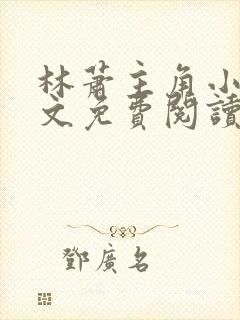 林蕭主角小
文免費閱讀
鄧廣名